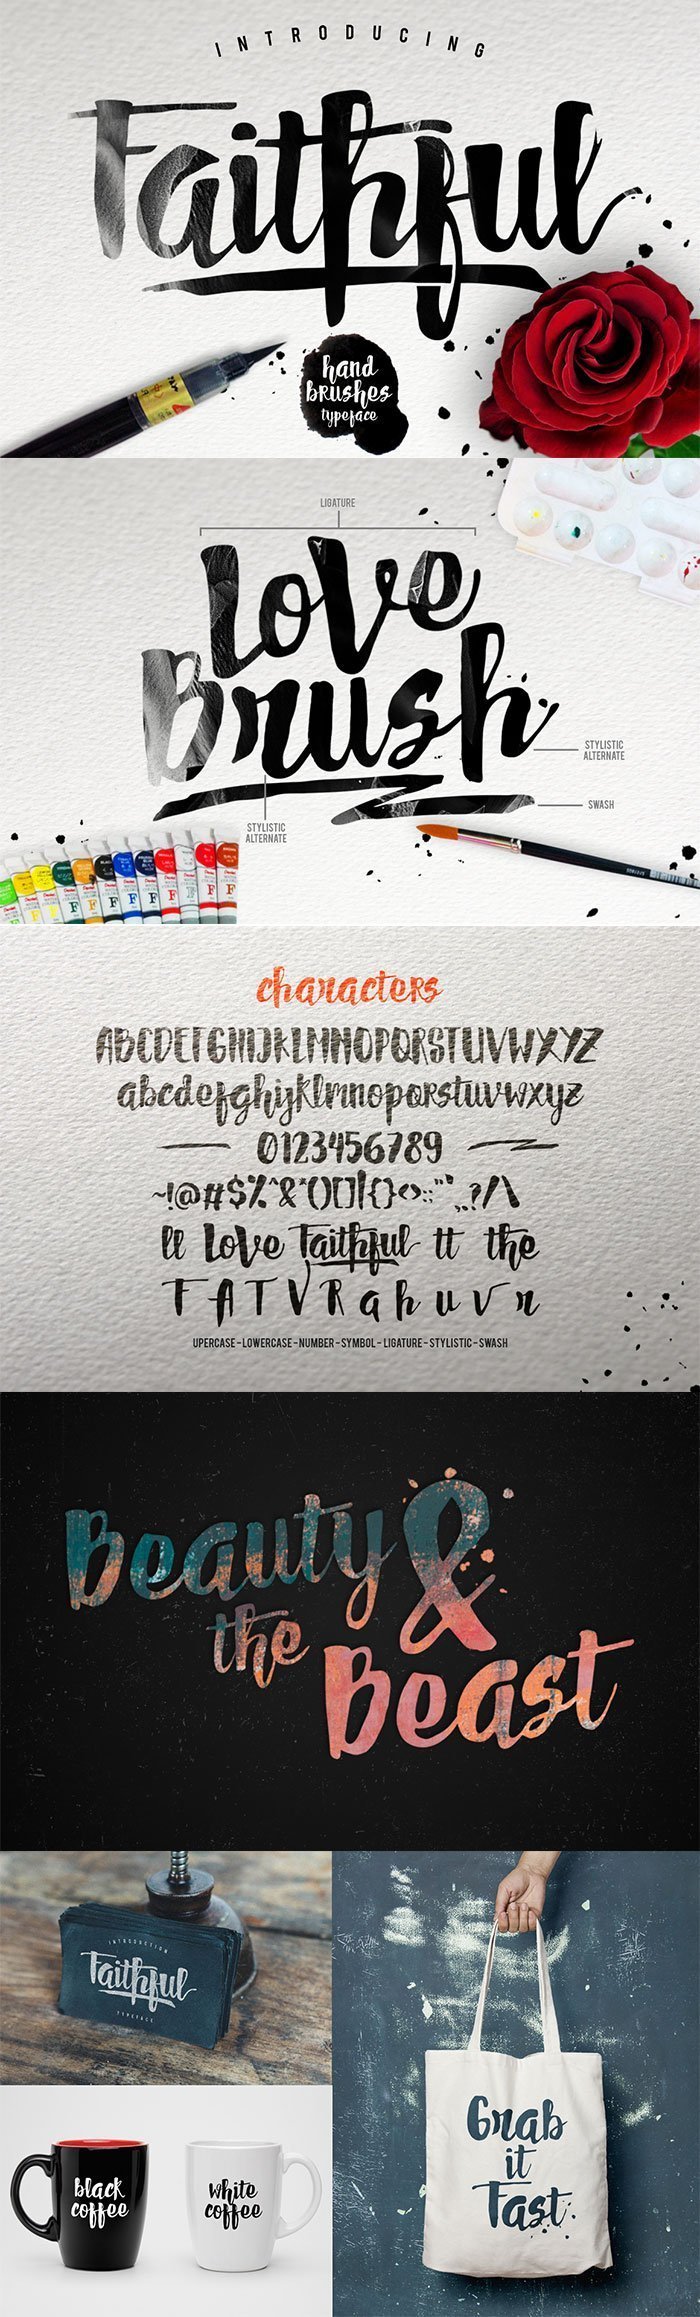 INTRODUCING
Faithful
hand
brushes
typeface
LIGATURE
Love
Brush
STYLISTIC
ALTERNATE
SWASH
STYLISTIC
ALTERNATE
characters
ABCDEFGHIJKLMNOPQRSTUVWXYZ
abcdefghijklmnopqrstuvwxyz
0123456789
~!@#$%^&*()[]|{}<>:;"',.?/\
ll Love Faithful tt the
F A T V R a h u v r
UPERCASE - LOWERCASE - NUMBER - SYMBOL - LIGATURE - STYLISTIC - SWASH
Beauty &
the Beast
INTRODUCTION
Faithful
TYPEFACE
black
coffee
white
coffee
Grab
it
Fast